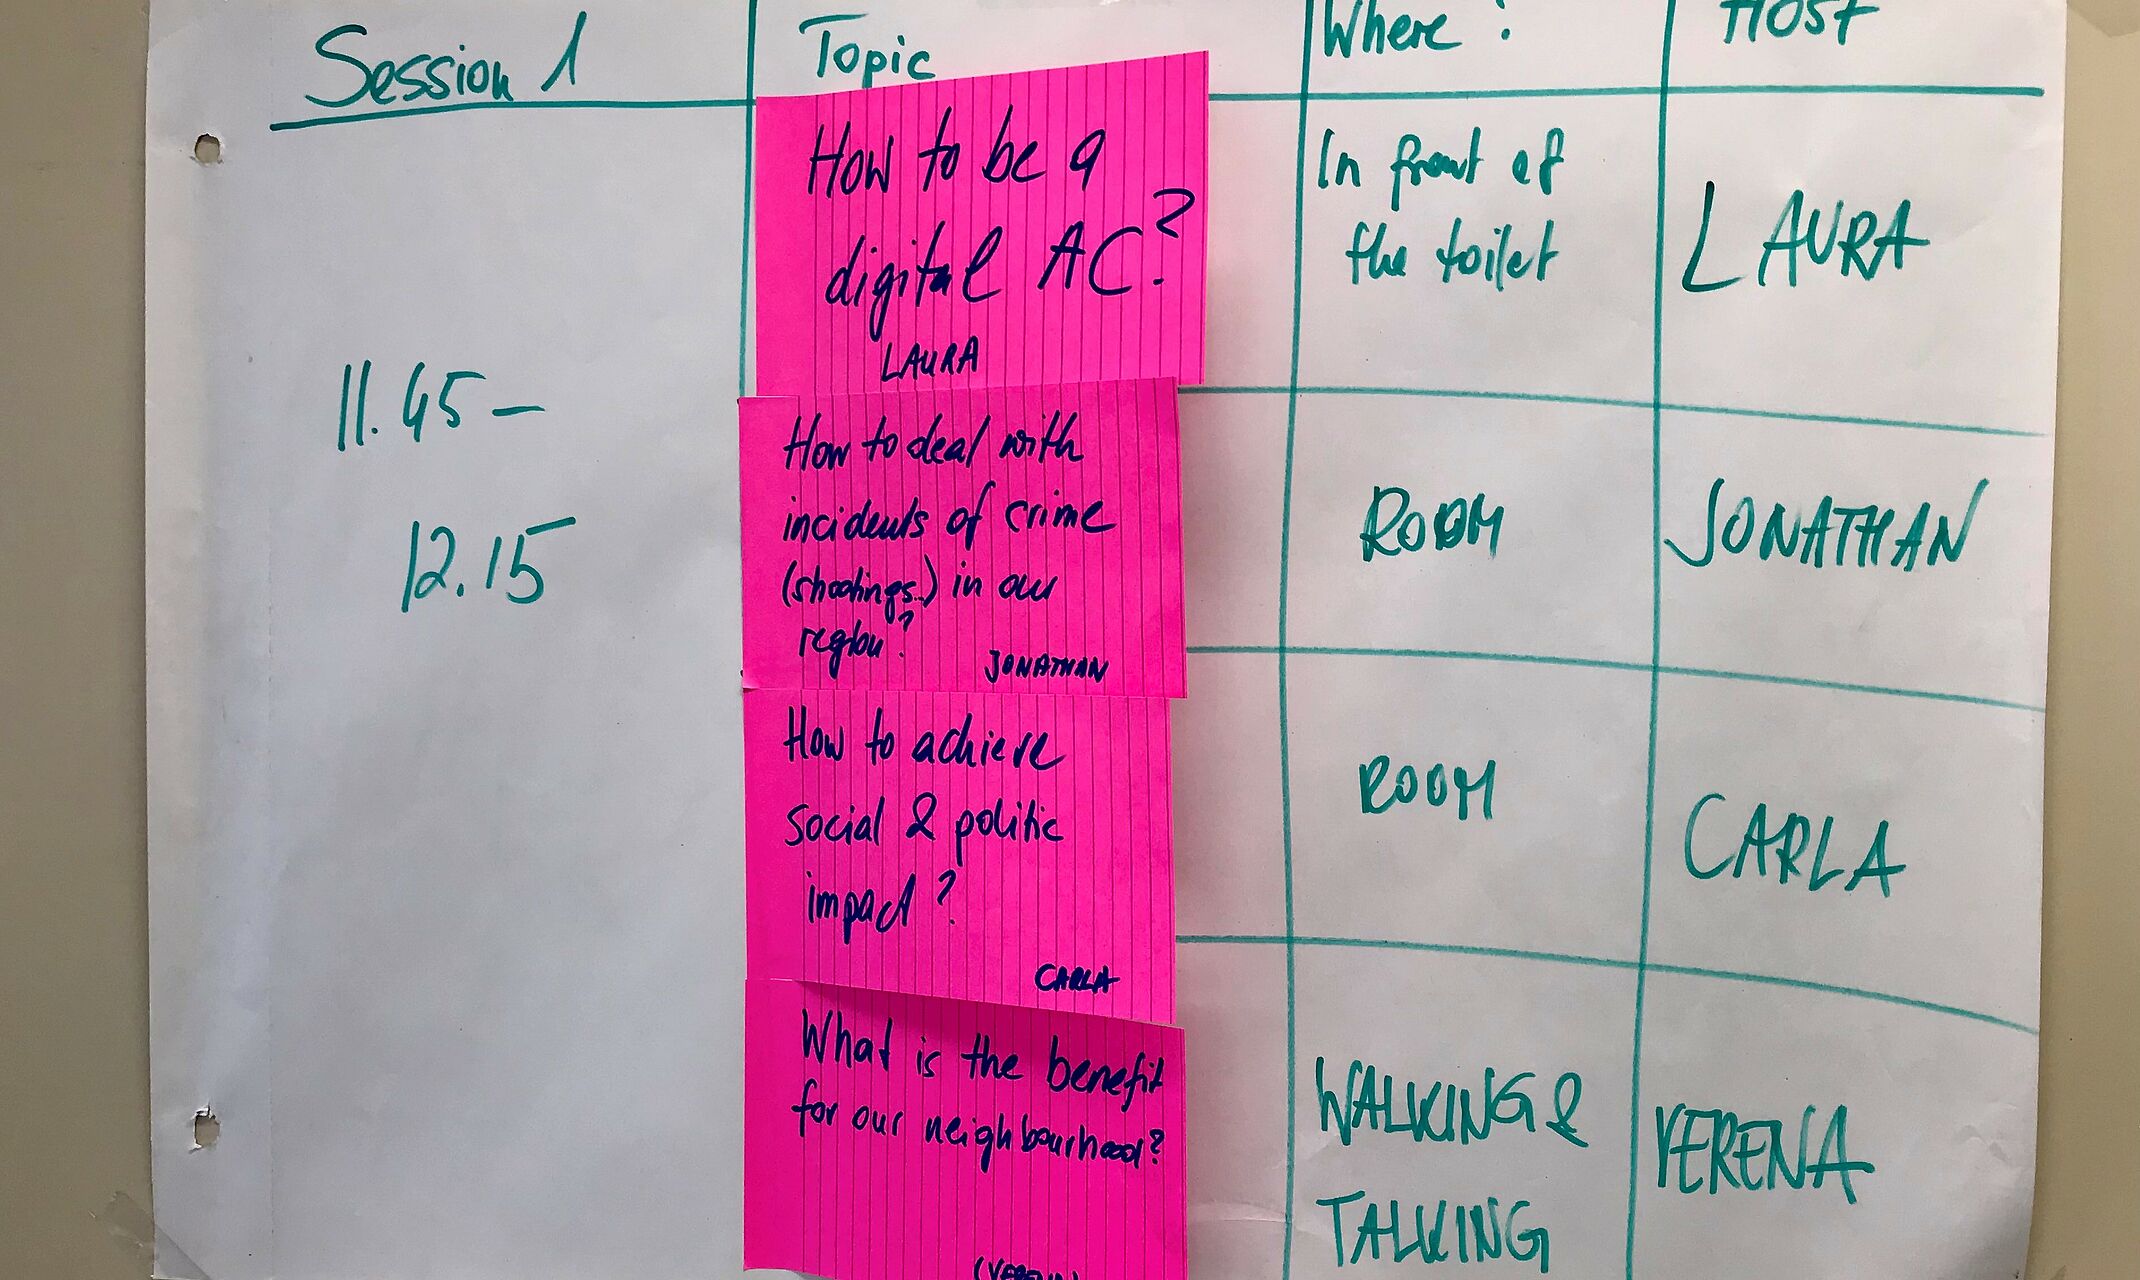 Session 1
Topic
Where?
HOST
11.45 –
12.15
How to be a
digital AC?
LAURA
In front of
the toilet
LAURA
How to deal with
incidents of crime
(shootings..) in our
region?
JONATHAN
ROOM
JONATHAN
How to achieve
social & politic
impact?
CARLA
ROOM
CARLA
What is the benefit
for our neighbourhood?
(VERENA)
WALKING &
TALKING
VERENA